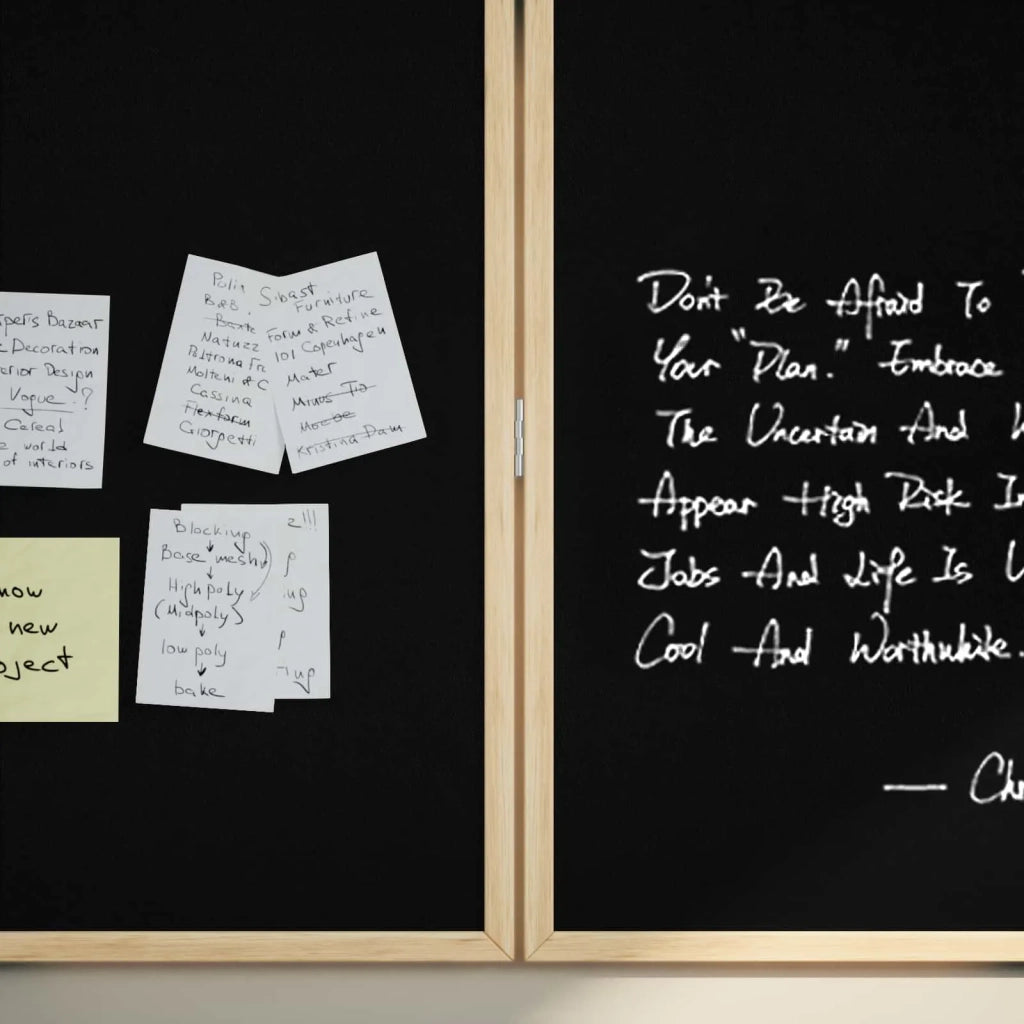 Bazaar
Decoration
Design
Vogue ?
Cereal
world
of interiors
B&B
Natuzz
Poltrona Fr
Molteni & C
Cassina
Flexform
Giorgetti
Sibast
Furniture
Form & Refine
101 Copenhagen
Mater
Kristina Dam
new
Blocking
Base mesh
High poly
(Midpoly)
low poly
bake
z!!!
p
ing
p
ing
Don't Be Afraid To
Your "Plan." Embrace
The Uncertain And
Appear High Risk
Jobs And Life Is
Cool And Worthwhile.
— Ch